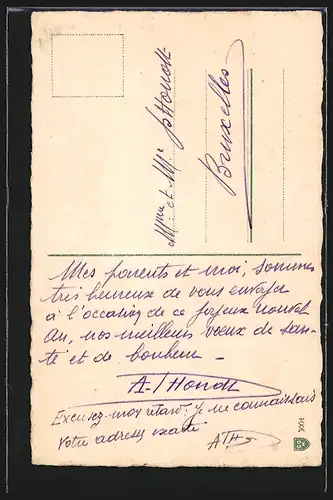 Mme et Mr. t'Hondt
Bruxelles
Mes parents et moi, sommes
très heureux de vous envoyer
à l'occasion de ce joyeux nouvel
An, nos meilleurs vœux de san-
té et de bonheur -
A. t'Hondt
Excusez-moi retard. Je ne connaissais
votre adresse exacte
3004